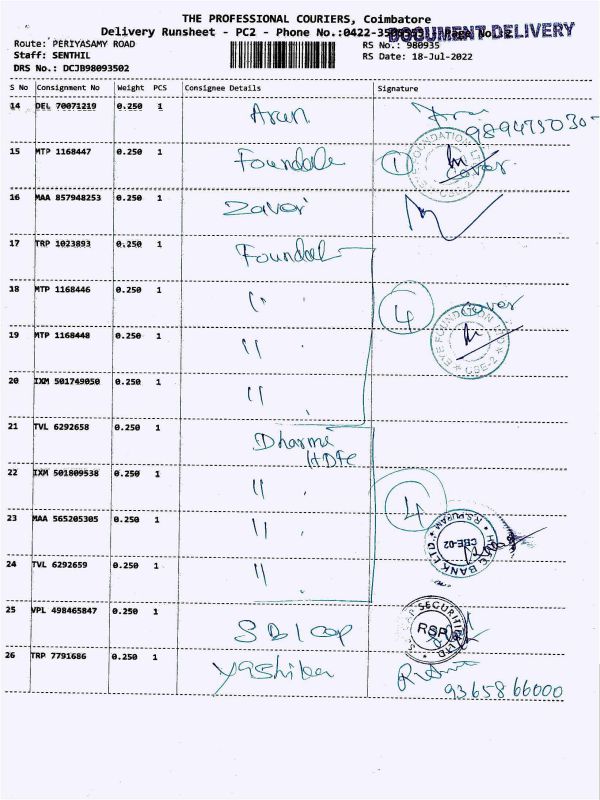 THE PROFESSIONAL COURIERS, Coimbatore
Delivery Runsheet - PC2 - Phone No.:0422-35 Page No. 2
DOCUMENT DELIVERY
Route: PERIYASAMY ROAD RS No.: 980935
Staff: SENTHIL RS Date: 18-Jul-2022
DRS No.: DCJB98093502
S No Consignment No Weight PCS Consignee Details Signature
14 DEL 70071219 0.250 1 Arun
15 MTP 1168447 0.250 1 Foundate 1 Cover
EYE FOUNDATION CBE-2
16 MAA 857948253 0.250 1 Zavar
17 TRP 1023893 0.250 1 Foundat
18 MTP 1168446 0.250 1 " 4 Cover
EYE FOUNDATION CBE-2
19 MTP 1168448 0.250 1 "
20 IXM 501749050 0.250 1 "
21 TVL 6292658 0.250 1 Dharmi
HDFC
22 IXM 501809538 0.250 1 " 4
23 MAA 565205305 0.250 1 "
R.S.PURAM CBE-02 BANK LTD.
24 TVL 6292659 0.250 1 "
25 VPL 498465847 0.250 1 SBI cap
SECURITIES LTD RSP
26 TRP 7791686 0.250 1 Yashika
9365866000